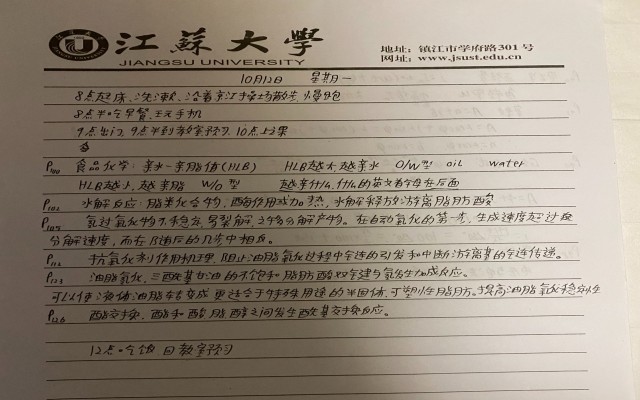 江蘇大學
JIANGSU UNIVERSITY
地址：镇江市学府路301号
网址：www.jsust.edu.cn
10月12日 星期一
8点起床、洗漱、沿着京江操场散步、慢跑
8点半吃早餐、玩手机
9点出门，9点半到教室预习，10点上课
P100 食品化学：亲水-亲脂值(HLB) HLB越大,越亲水 O/W型 oil water
HLB越小,越亲脂 W/O型 越亲什么,什么的英文首字母在后面
P102 水解反应:脂类化合物,酶作用或加热,水解释放游离脂肪酸
P105 氢过氧化物不稳定,易裂解之物分解产物。在自动氧化的第一步,生成速度超过
分解速度,而在随后的几步中相反。
P114 抗氧化剂作用机理,阻止油脂氧化过程中全连的引发和中断游离基的全连传递。
P123 油脂氢化,三酰基甘油的不饱和脂肪酸双键与氢发生加成反应。
可以使液体油脂转变成更适合于特殊用途的半固体,可塑性脂肪。提高油脂氧化稳定性
P126 酯交换,酯和酸,脂,醇之间发生酰基交换反应。
12点吃饭 回教室预习